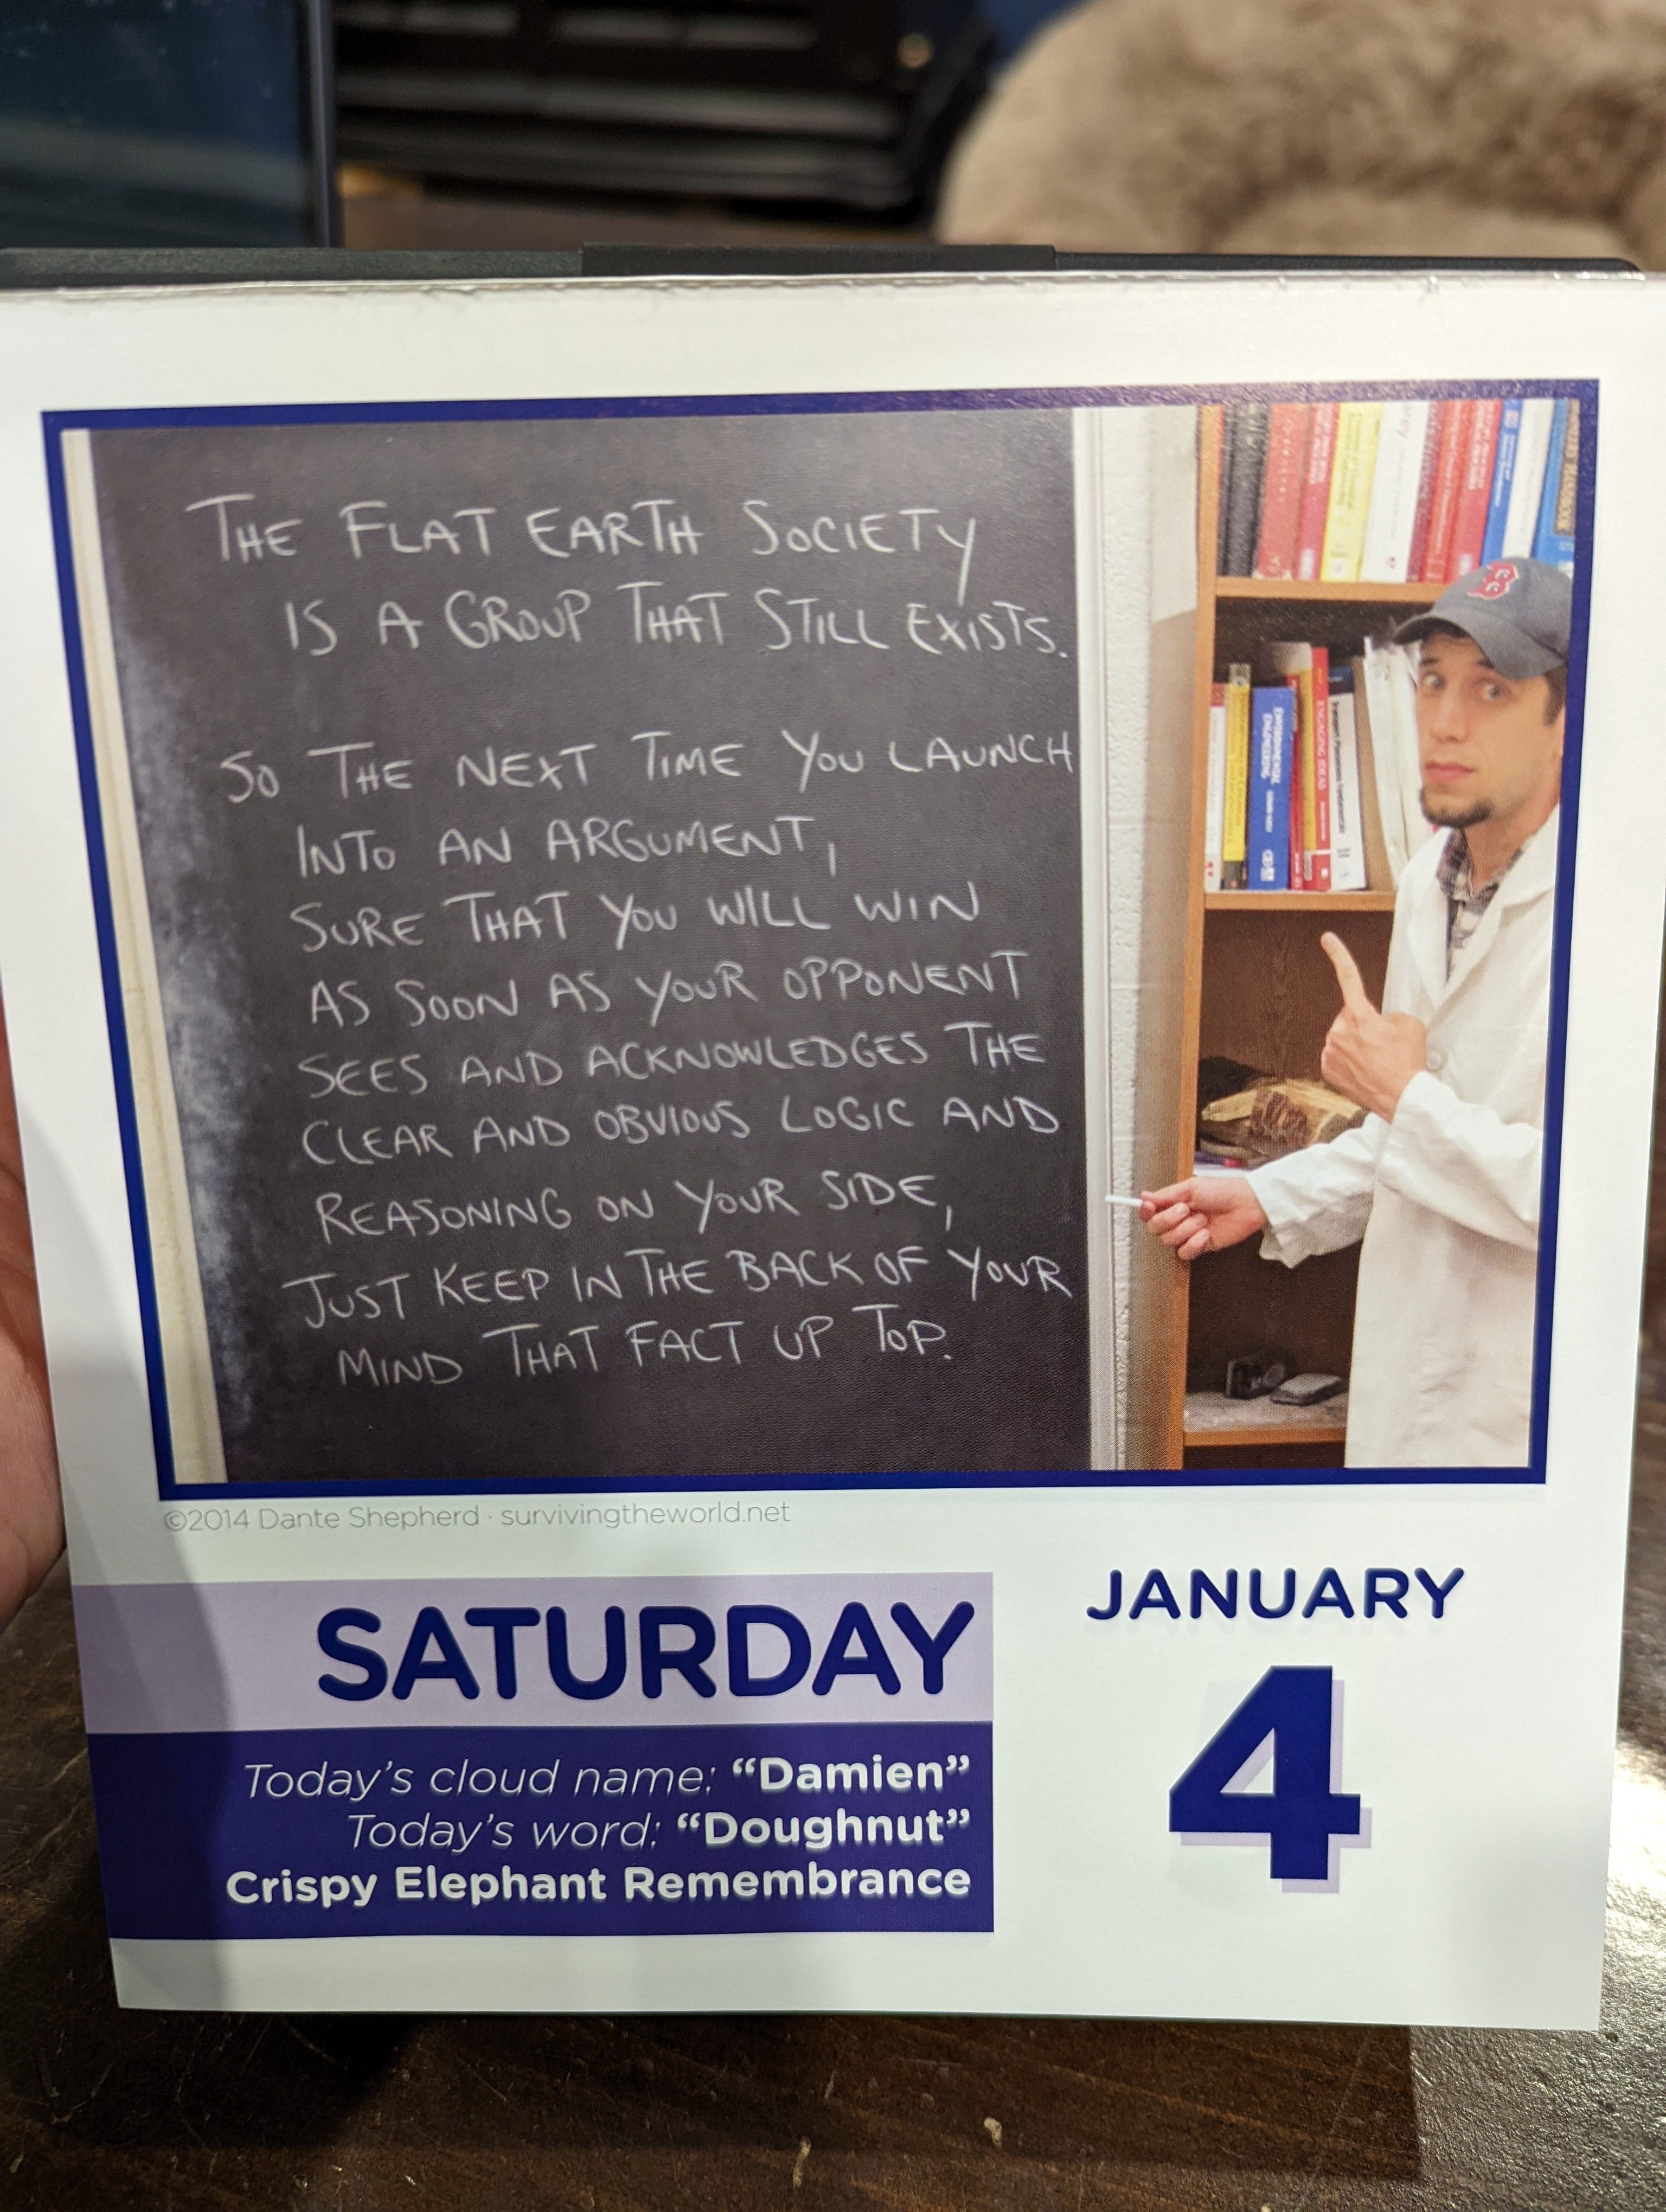 THE FLAT EARTH SOCIETY
IS A GROUP THAT STILL EXISTS.
SO THE NEXT TIME YOU LAUNCH
INTO AN ARGUMENT,
SURE THAT YOU WILL WIN
AS SOON AS YOUR OPPONENT
SEES AND ACKNOWLEDGES THE
CLEAR AND OBVIOUS LOGIC AND
REASONING ON YOUR SIDE,
JUST KEEP IN THE BACK OF YOUR
MIND THAT FACT UP TOP.
B
ENVIRONMENTAL
ENGINEERING
ENGAGING IDEAS
©2014 Dante Shepherd · survivingtheworld.net
SATURDAY
Today's cloud name: “Damien”
Today's word: “Doughnut”
Crispy Elephant Remembrance
JANUARY
4